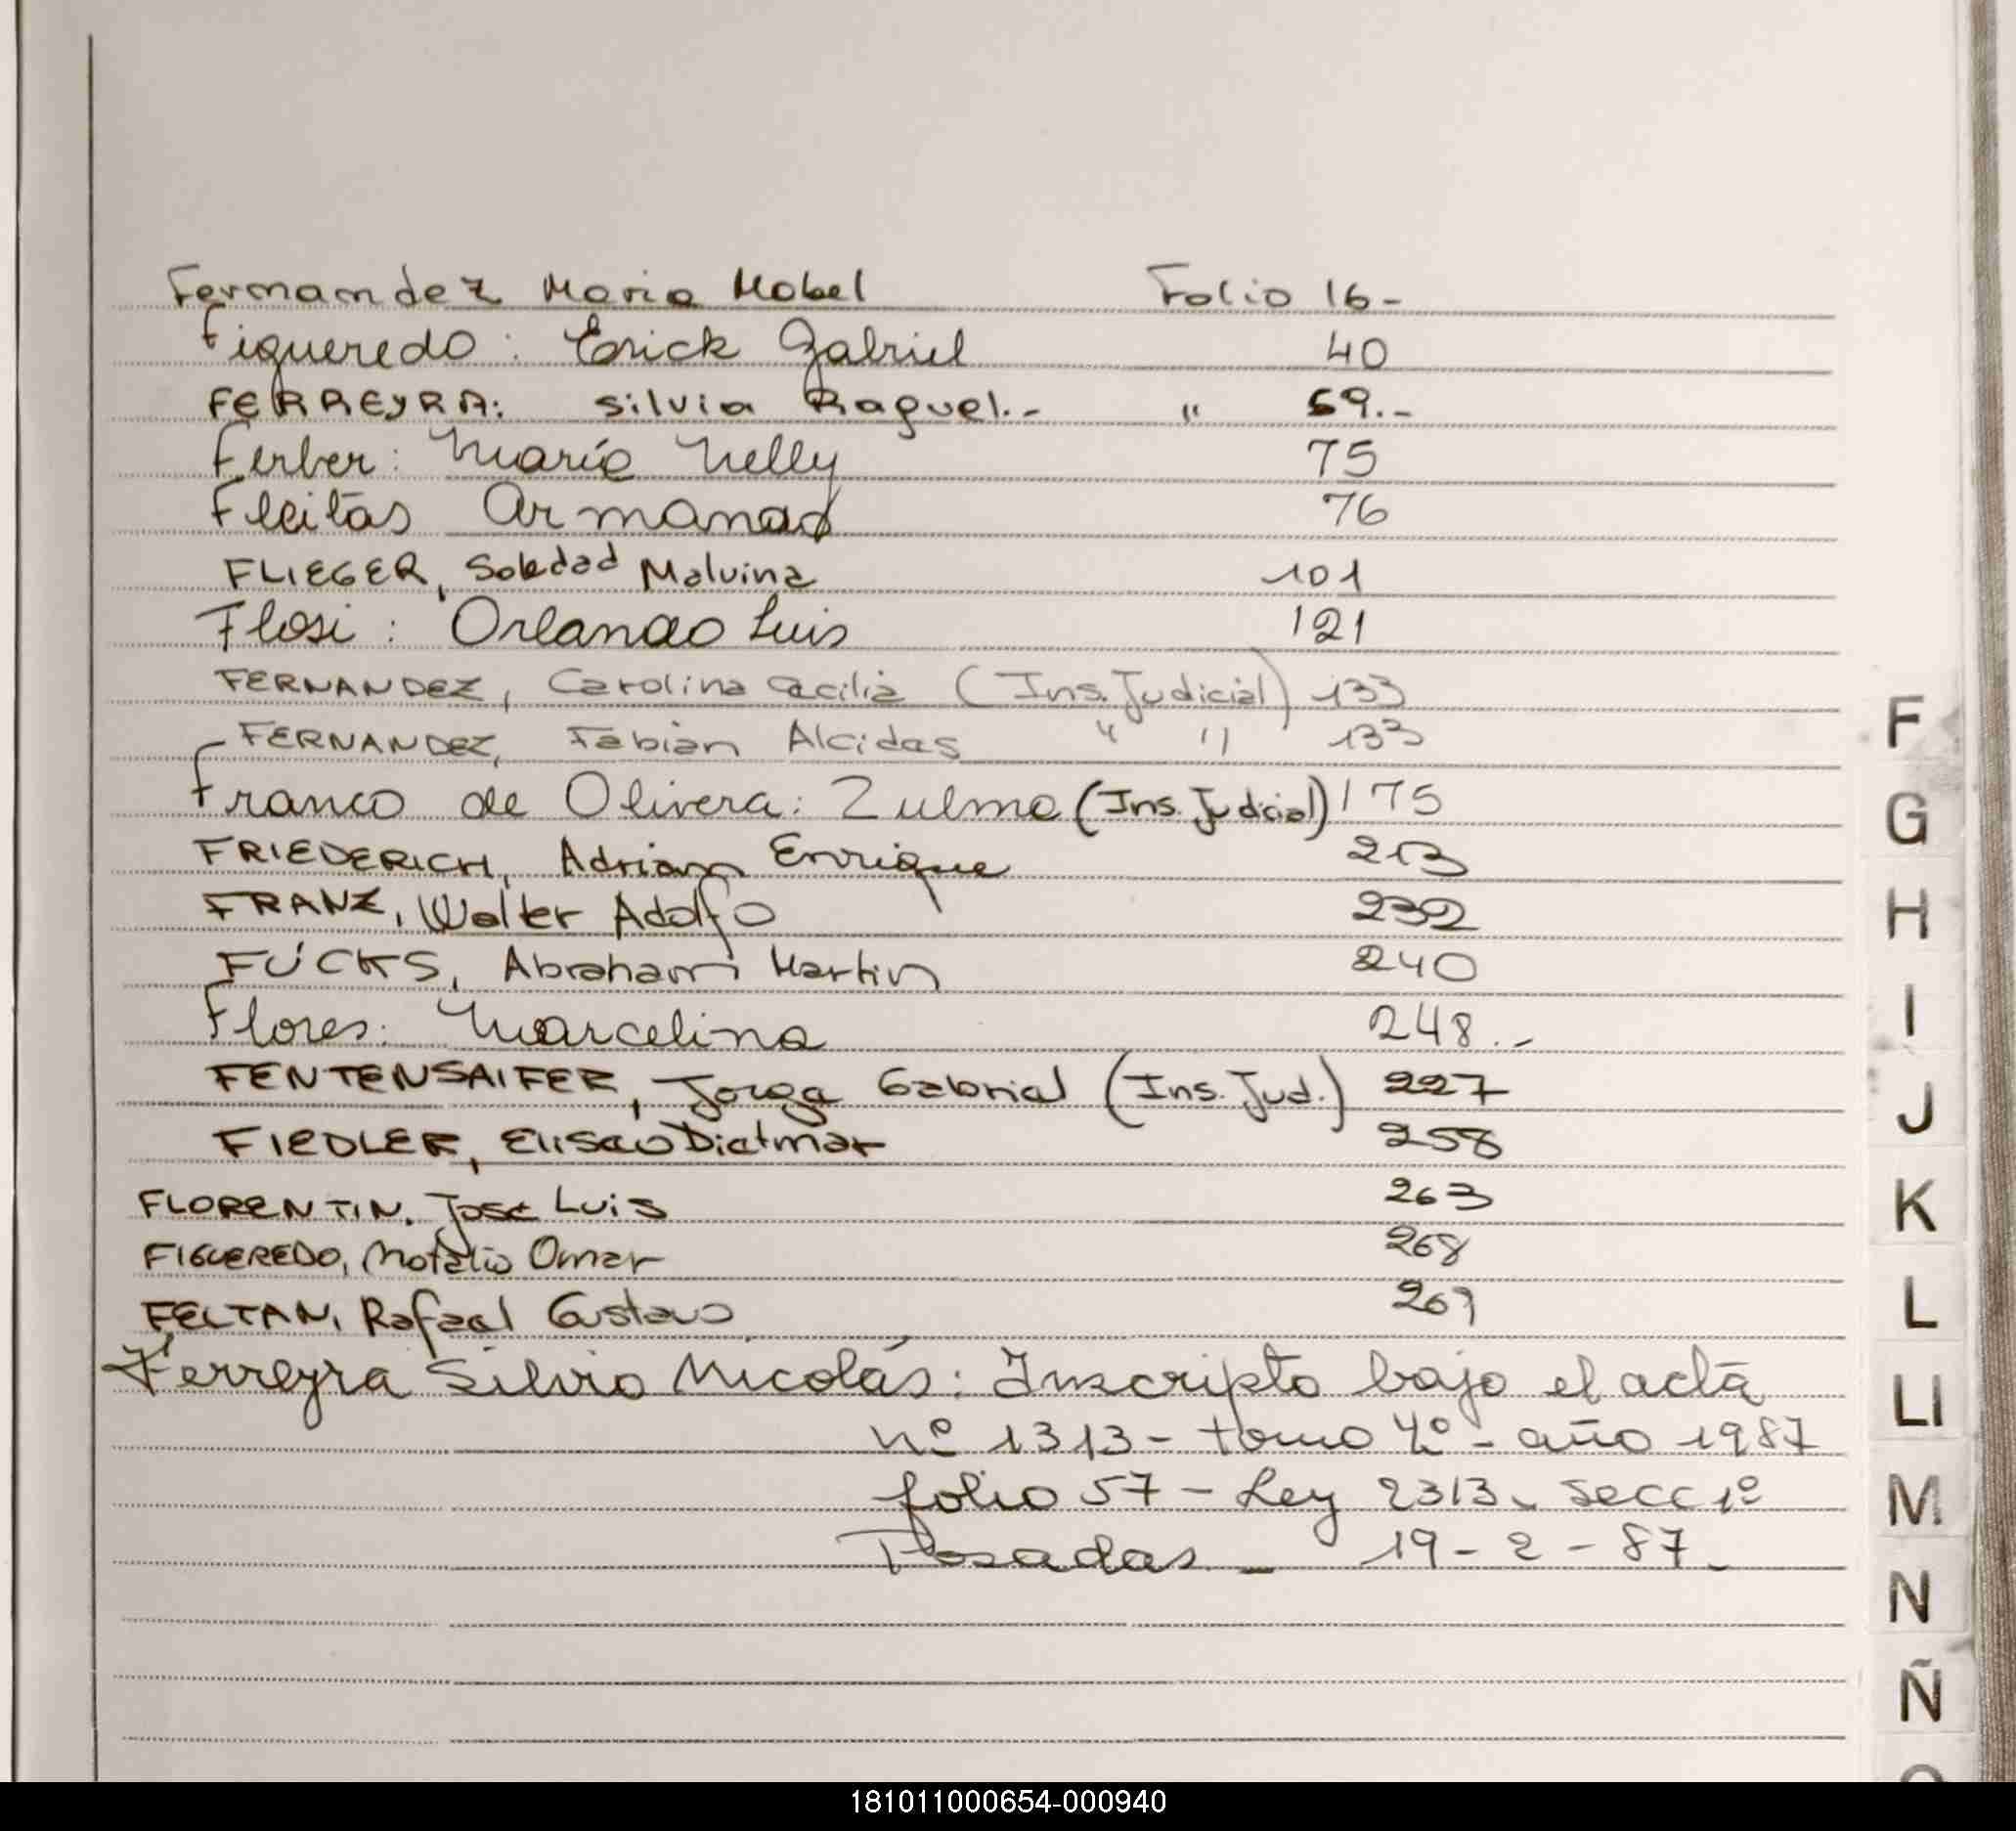 Fernandez Maria Mabel Folio 16-
Figueredo: Erick Gabriel 40
FERREYRA: Silvia Raquel.- " 69.-
Ferber: María Nelly 75
Fleitas Armando 76
FLIEGER, Soledad Malvina 101
Flosi: Orlando Luis 121
FERNANDEZ, Carolina Cecilia (Ins. Judicial) 133
FERNANDEZ, Fabián Alcides " " 133
Franco de Olivera: Zulma (Ins. Judicial) 175
FRIEDERICH, Adrian Enrique 213
FRANZ, Walter Adolfo 232
FÚCKS, Abraham Martin 240
Flores: Marcelina 248.-
FENTENSAIFER, Jorge Gabriel (Ins. Jud.) 227
FIEDLER, Eliseo Dietmar 258
FLORENTIN, Jose Luis 263
FIGUEREDO, Natalio Omar 268
FELTAN, Rafael Gustavo 269
Ferreyra Silvio Nicolás: Inscripto bajo el acta
nº 1313 - tomo 4º - año 1987
folio 57 - Ley 2313. secc 1º
Posadas - 19-2-87-
F
G
H
I
J
K
L
Ll
M
N
Ñ
181011000654-000940